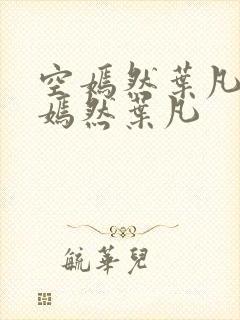 空嫣然葉凡
嫣然葉凡
毓華兒